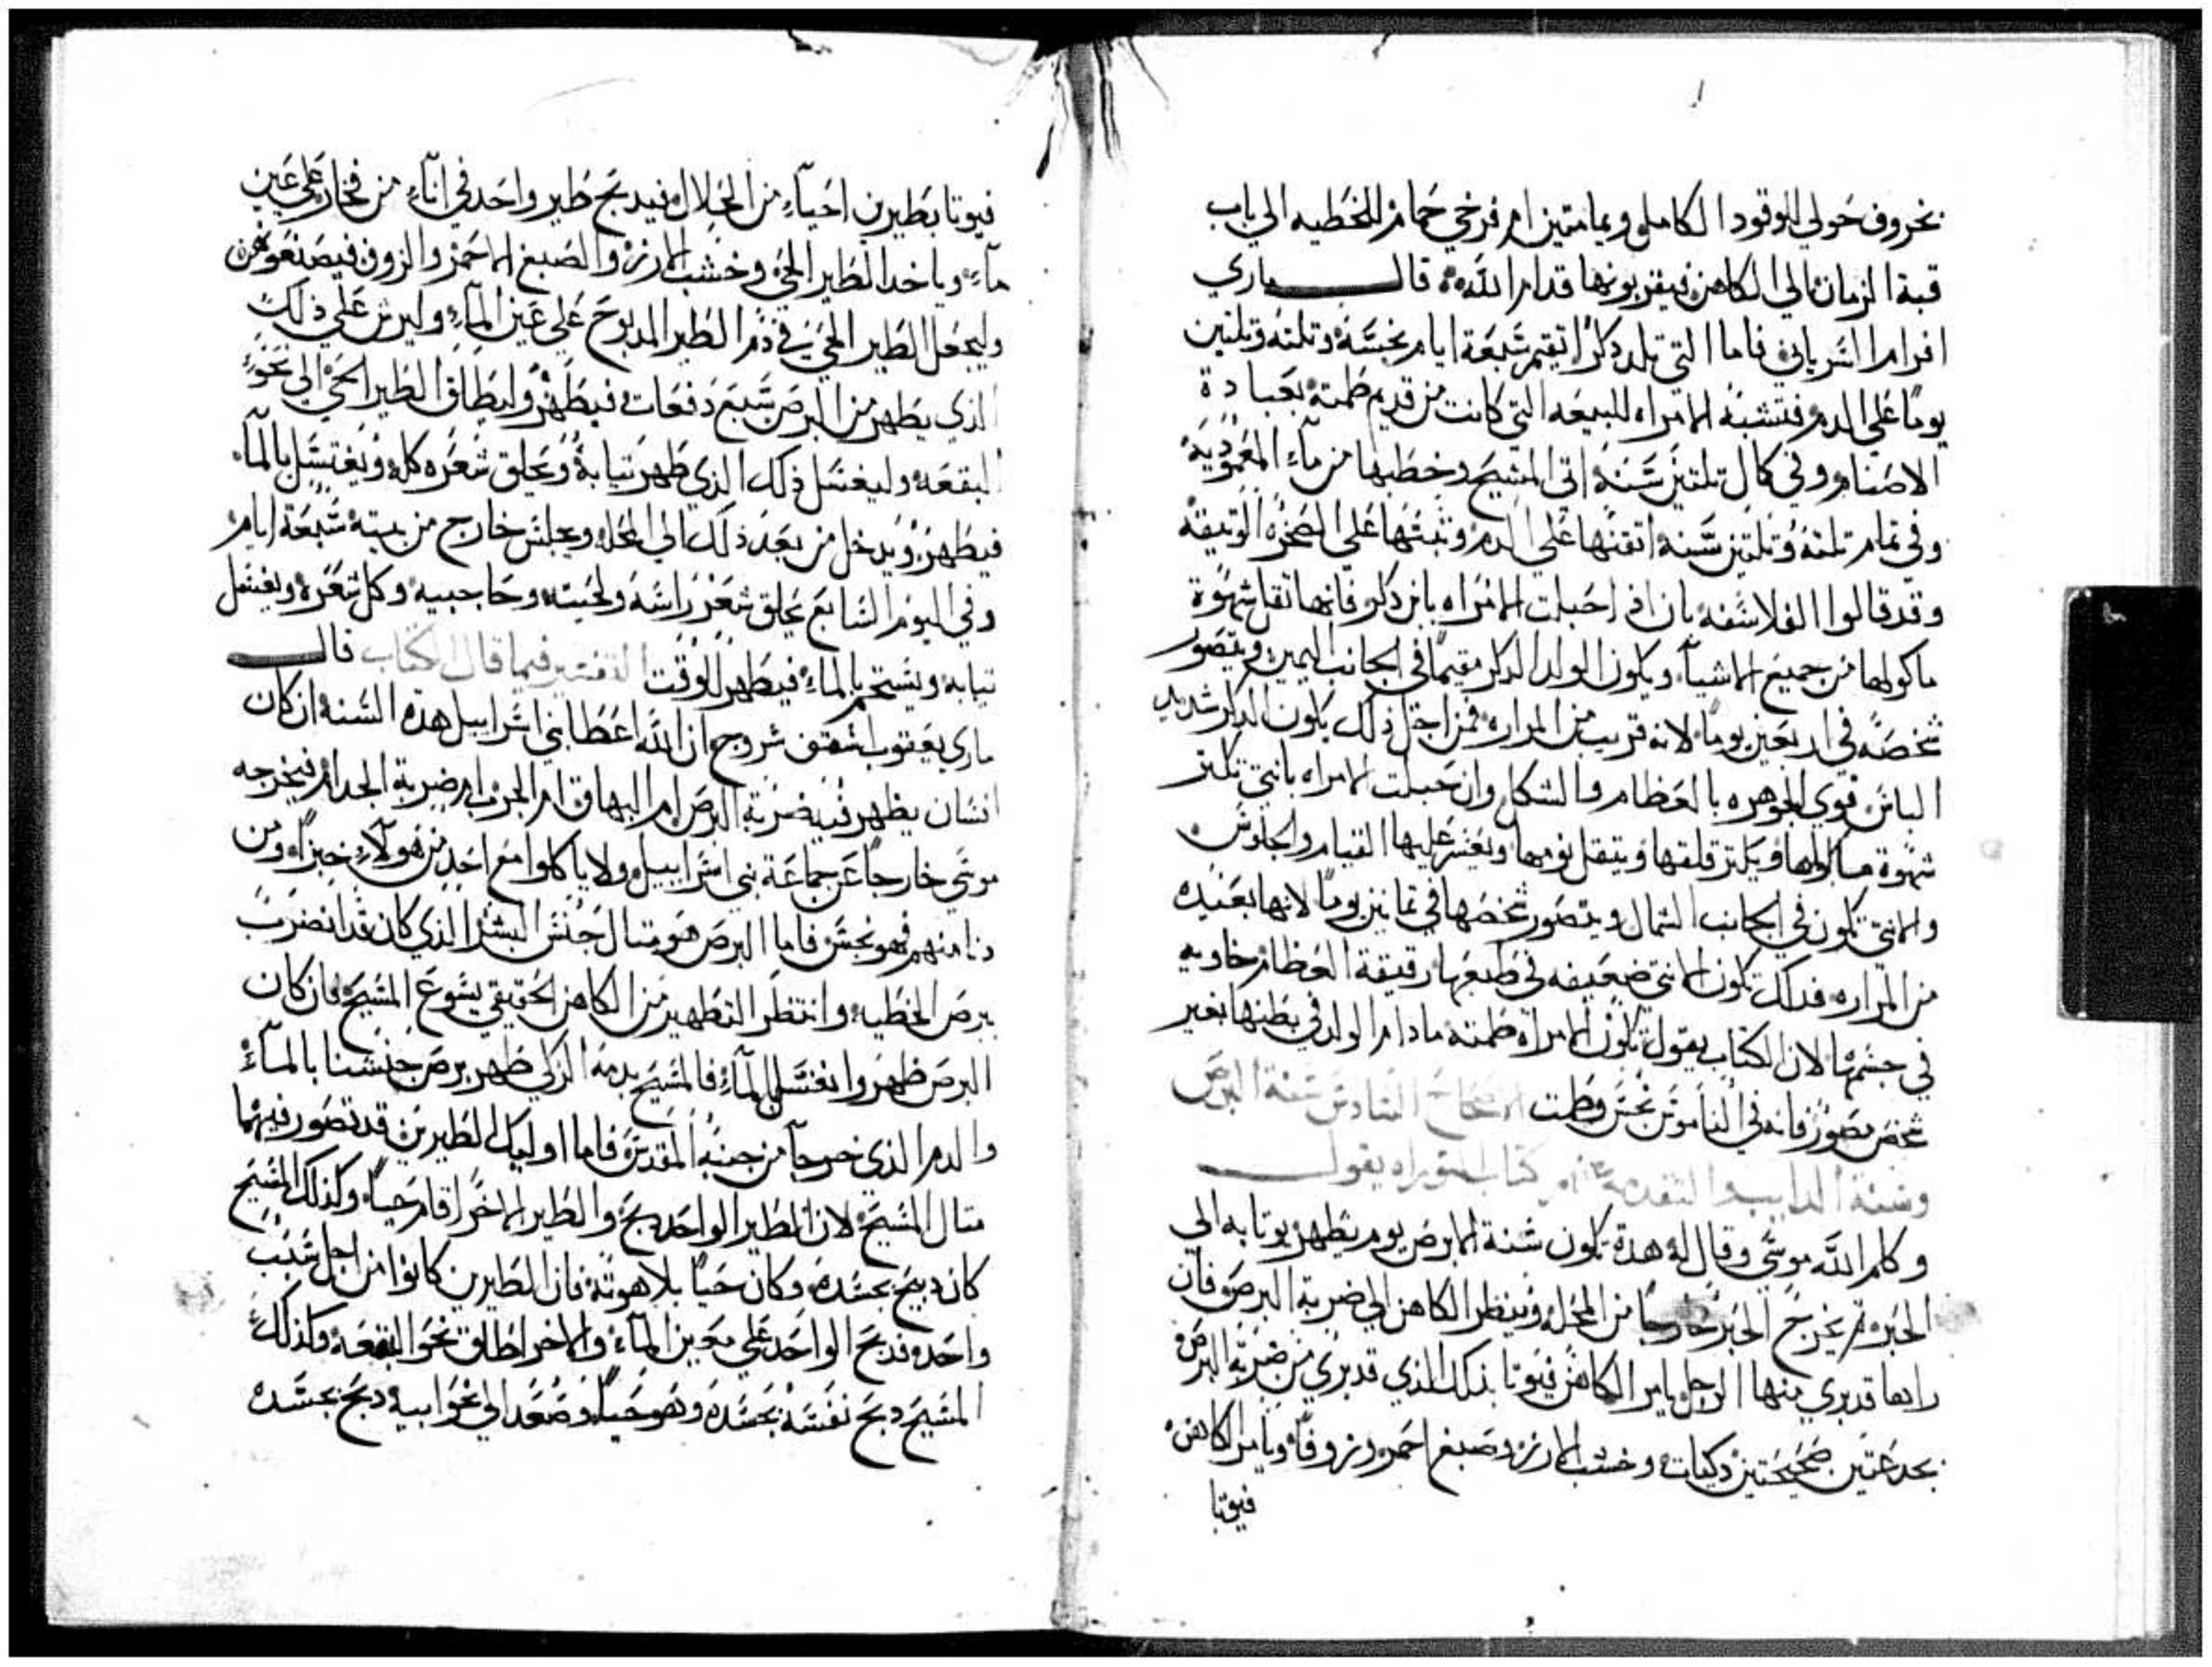 بخروف حولي للوقود الكامله ويمامتين ام فرخي حمام للخطيه الي باب
قبة الزمان الي الكاهن فيقربونها قدام الله قال ماري
افرام السرياني فاما التي تلد دكرا تقيم سبعة ايام نجسه وتلته وتلتين
يوما علي الدم فتشبه الامراه للبيعه التي كانت من قديم طمته بعبادة
الاصنام وفي كمال تلتين سنه اتي المسيح وخطبها من ماء المعموديه
وفي تمام تلته وتلتين سنه اتقنها علي الدم وتبتها علي الصخره الوتيقه
وقد قالوا الفلاسفه بان اذا حبلت الامراه بابن دكر فانها تقل شهوة
ماكولها من جميع الاشياء ويكون الولد الدكر مقيما في الجانب اليمين ويتصور
شخصه في اربعين يوما لانه قريب من المراره فمن اجل ذلك يكون الدكر شديد
الباس قوي الجوهره بالعظام والشكل وان حبلت الامراه بانتي تكتر
شهوة ماكولها ويكتر قلقها ويتقل نومها ويعسر عليها القيام والجلوس
والانتي تكون في الجانب الشمال ويتصور شخصها في تمانين يوما لانها بعيده
من المراره فدلك تكون الانتي ضعيفه في طبعها رقيقة العظام خاويه
في جسمها لان الكتاب يقول تكون الامراه طمته مادام الولد في بطنها بغير
شخص مصور فانه في الناموس نجس وطمت الاصحاح السادس سنة البرص
وسنة الدابيب التقدمه من كتاب التوراه يقول
وكلم الله موسي وقال له هده تكون سنة الابرص يوم يطهر يوتا به الي
الحبر تم يخرج الحبر خارجا من المحله وينظر الكاهن الي ضربة البرص فان
راها قد بري منها الرجل يامر الكاهن فيوتا بذلك الذي قد بري من ضربة البرص
بجدعتين صحيحتين دكيات وخشب الارز وصبغ احمر وزوفا ويامر الكاهن
فيوتا
فيوتا بطيرين احياء من الحلال فيدبح طير واحد في اناء من فخار علي عين
ماء وياخد الطير الحي وخشب الارز والصبغ الاحمر والزوفي فيصنعوهن
وليجعل الطير الحي في دم الطير المدبوح علي عين الماء وليرش علي ذلك
الذي يطهر من البرص سبع دفعات فيطهر وليطلق الطير الحي الي نحو
البقعه وليغسل ذلك الذي طهر تيابه ويحلق شعره كله ويغتسل بالماء
فيطهر ويدخل من بعد ذلك الي المحله ويجلس خارج من بيته سبعة ايام
وفي اليوم السابع يحلق شعر راسه ولحيته وحاجبيه وكل شعره ويغسل
تيابه ويستحم بالماء فيطهر الوقت التفسير فيما قال الكتاب قال
ماري يعقوب اسقف سروج ان الله اعطا بني اسراييل هده السنه ان كان
انسان يظهر فيه ضربة البرص ام البهاق ام الجرب ام ضربة الجدام فيخرجه
موسي خارجا عن جماعة بني اسراييل ولا ياكلوا مع احد من هولاء خبزا ومن
دنا منهم فهو نجس فاما البرص هو متال جنس البشر الذي كان قد انضرب
ببرص الخطيه وانتظر التطهير من الكاهن الحقيقي يسوع المسيح فان كان
البرص ظهر وانغسل بالماء فالمسيح بدمه الزكي طهر برص جنسنا بالماء
والدم الذي خرجا من جنبه المقدس فاما اوليك الطيرين قد تصور فيهما
متال المسيح لان الطير الواحد دبح والطير الاخر اقام حيا وكدلك المسيح
كان دبيح بجسده وكان حيا بلاهوته فان الطيرين كانوا من اجل سبب
واحده فدبح الواحد علي معين الماء والاخر اطلق نحو البقعه وكذلك
المسيح دبح نفسه بجسده وهو حيا وصعد الي نحو ابيه دبح بجسده